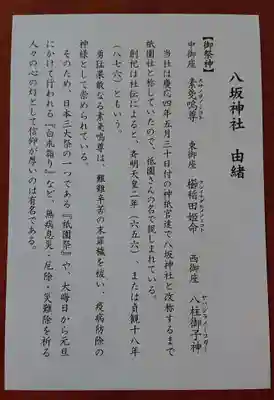 八坂神社　由緒
【御祭神】
中御座　素戔嗚尊　東御座　櫛稲田姫命　西御座　八柱御子神
当社は慶応四年五月三十日付の神祇官達で八坂神社と改称するまで
祇園社と称していたので、祇園さんの名で親しまれている。
創祀は社伝によると、斉明天皇二年（六五六）、または貞観十八年
（八七六）ともいう。
勇猛果敢なる素戔嗚尊は、艱難辛苦の末罪穢を祓い、疫病防除の
神様として崇められている。
そのため、日本三大祭の一つである『祇園祭』や、大晦日から元旦
にかけて行われる『白朮詣り』など、無病息災・厄除・災難除を祈る
人々の心の灯として信仰が厚いのは有名である。